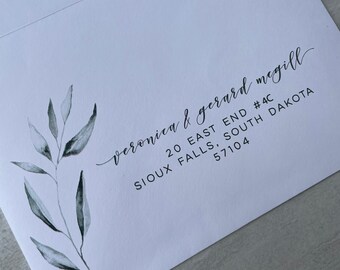 veronica & gerard mcgill
20 EAST END #4C
SIOUX FALLS, SOUTH DAKOTA
57104